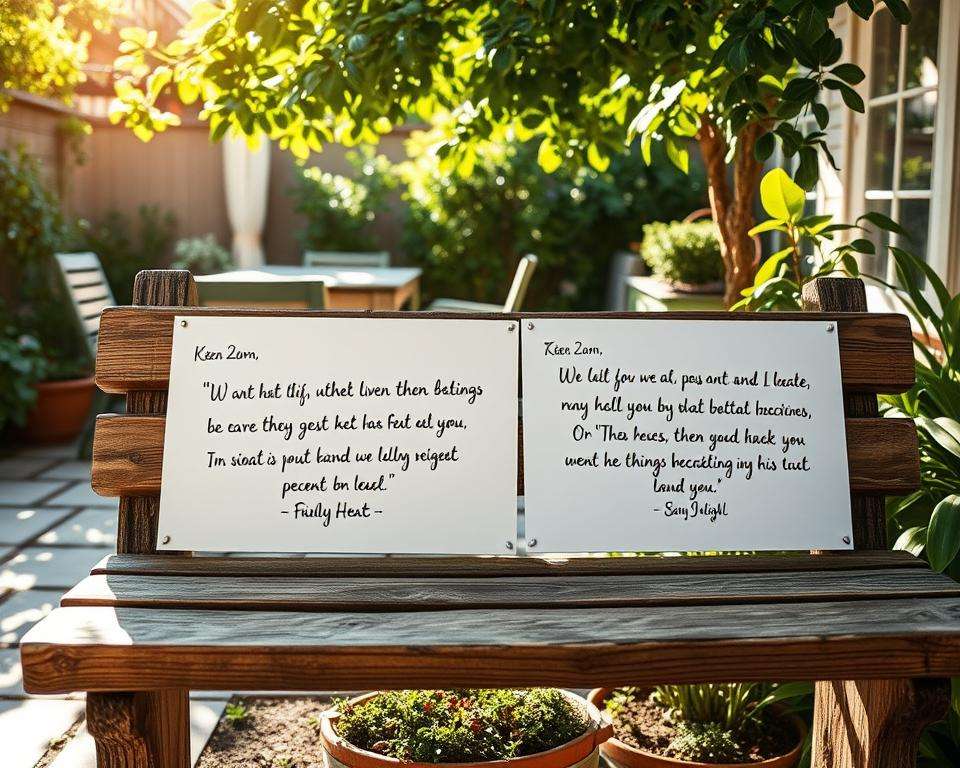 Kzen 2am,
"W ant hst thif, uthet liven then Batings
be care they gest ket has Fert eel you,
I'm sioat is pout band we lelby reigeet
pecent bn leud."
- Fiully Heat -
Zken 2am,
We lalt fow we al, pas ant and I leate,
may hell you by dlat bettal baccines,
Or "Thes heces, then goud hack you
went he things heccklting iny his taut
land you."
- Say Inlight